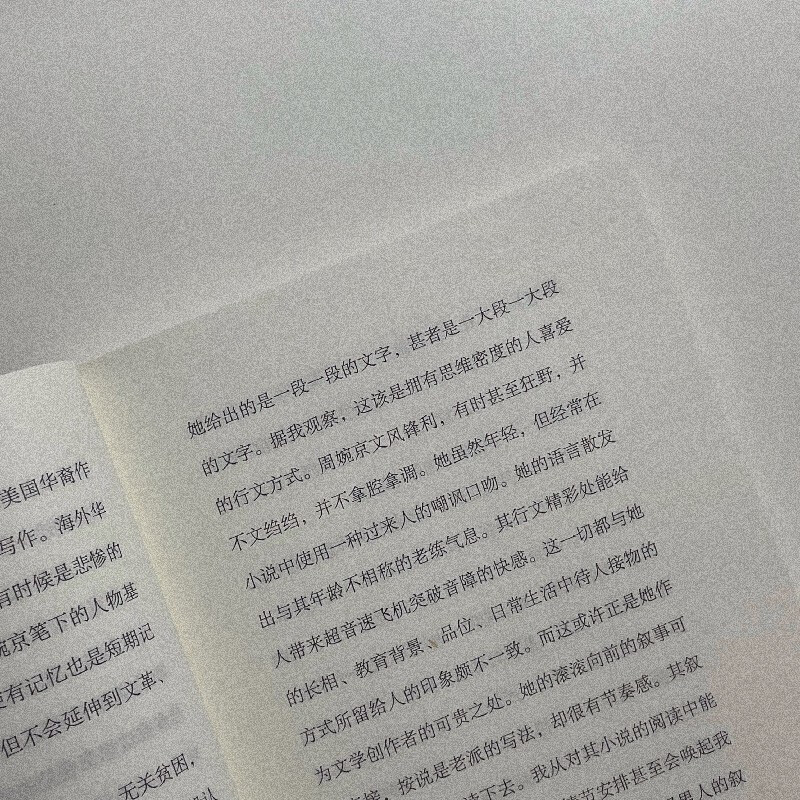 美国华裔作
写作。海外华
有时候是悲惨的
婉京笔下的人物基
有记忆也是短期记
但不会延伸到文革、
无关贫困，
她给出的是一段一段的文字，甚者是一大段一大段
的文字。据我观察，这该是拥有思维密度的人喜爱
的行文方式。周婉京文风锋利，有时甚至狂野，并
不文绉绉，并不拿腔拿调。她虽然年轻，但经常在
小说中使用一种过来人的嘲讽口吻。她的语言散发
出与其年龄不相称的老练气息。其行文精彩处能给
人带来超音速飞机突破音障的快感。这一切都与她
的长相、教育背景、品位、日常生活中待人接物的
方式所留给人的印象颇不一致。而这或许正是她作
为文学创作者的可贵之处。她的滚滚向前的叙事可
按说是老派的写法，却很有节奏感。其叙
下去。我从对其小说的阅读中能
节安排甚至会唤起我
男人的叙